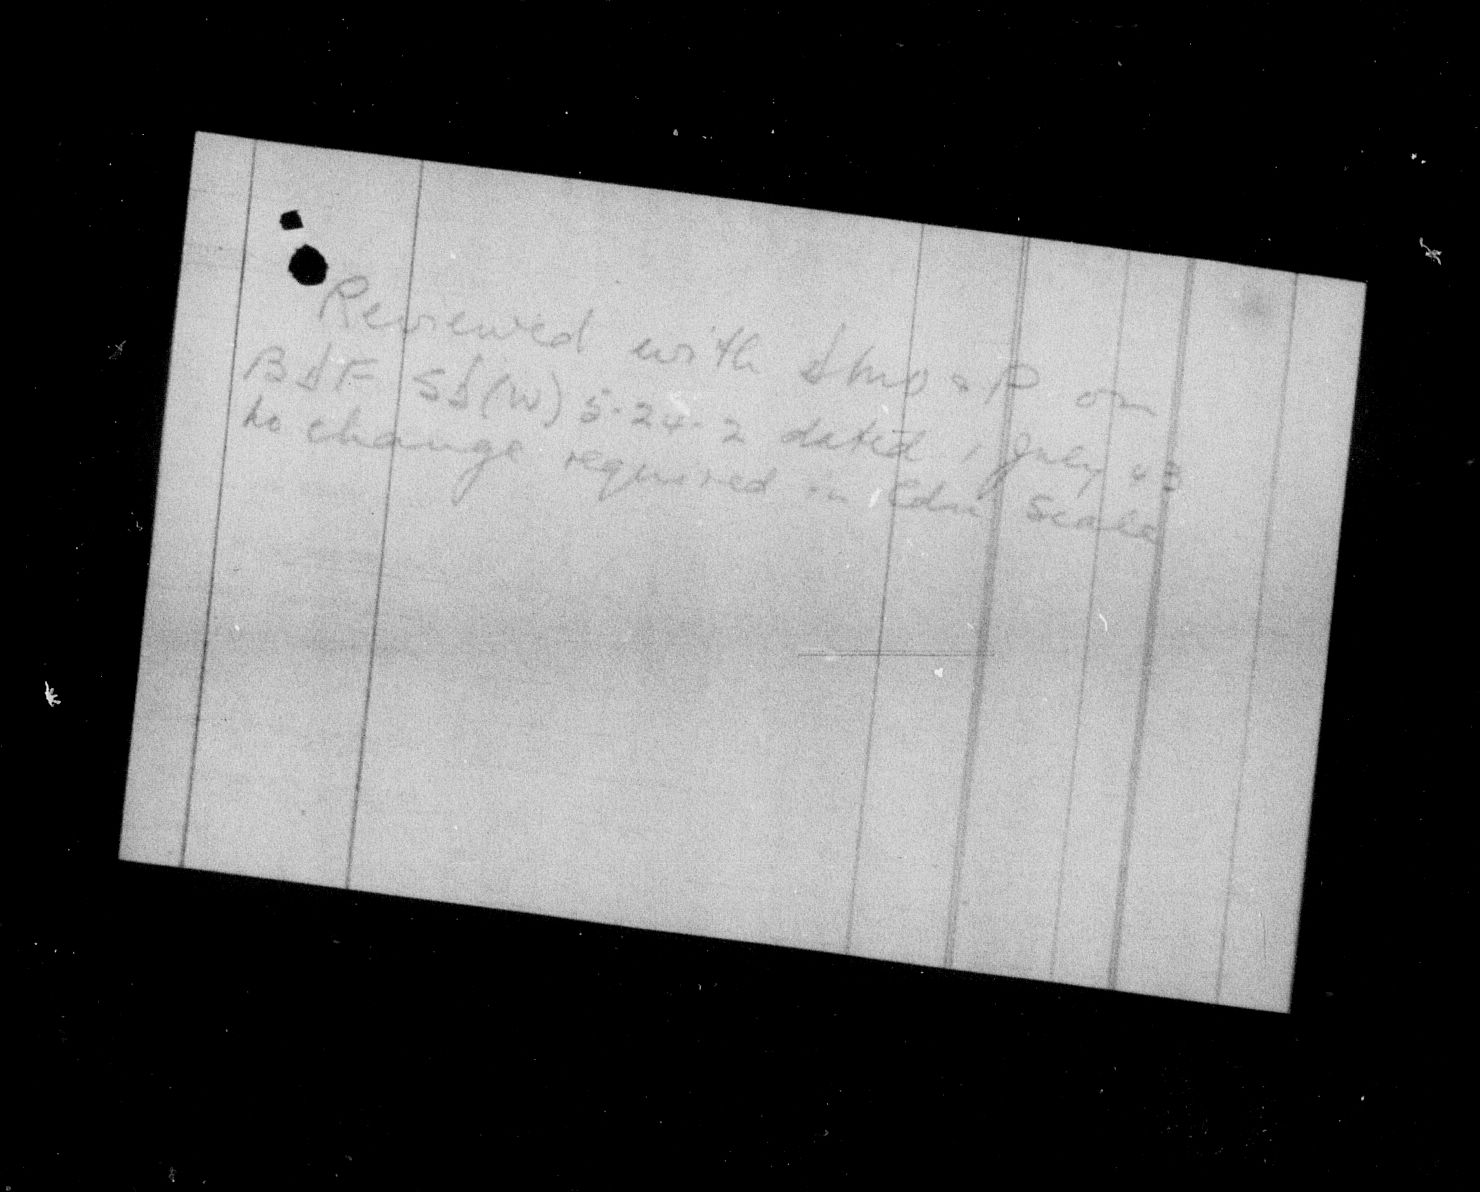 Reviewed with DMO&P on
BDF SD(W) 5-24-2 dated 1 July 43
No change required in Cdn Scale